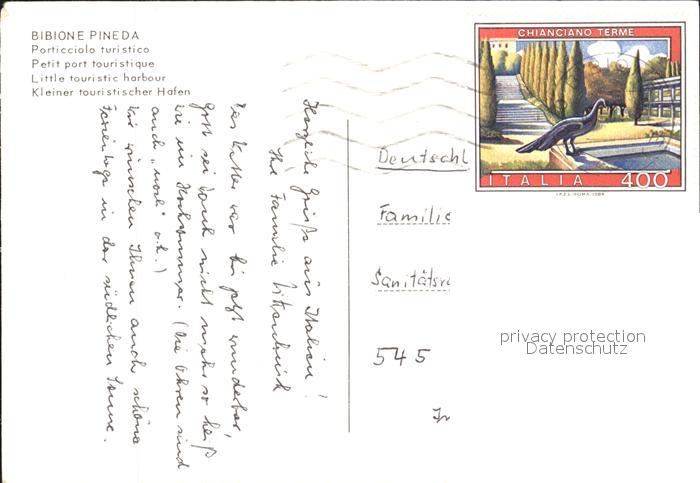 BIBIONE PINEDA
Porticciolo turistico
Petit port touristique
Little touristic harbour
Kleiner touristischer Hafen
CHIANCIANO TERME
ITALIA 400
I.P.Z.S.-ROMA-1984
Herzliche Grüße aus Italien!
Ihre Familie
Das Wetter war bis jetzt wunderbar,
Gott sei Dank nicht mehr so heiß
wie im Hochsommer. (Die Ohren sind
auch "noch" o.k.!)
Wir wünschen Ihnen auch schöne
Ferientage in der südlichen Sonne.
Deutschl
Familie
Sanitätsr
545
privacy protection
Datenschutz